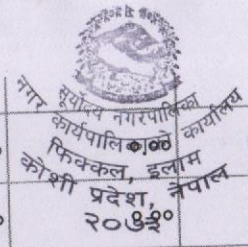 सूर्योदय नगरपालिका
नगर कार्यपालिकाको कार्यालय
फिक्कल, इलाम
कोशी प्रदेश, नेपाल
२०७३